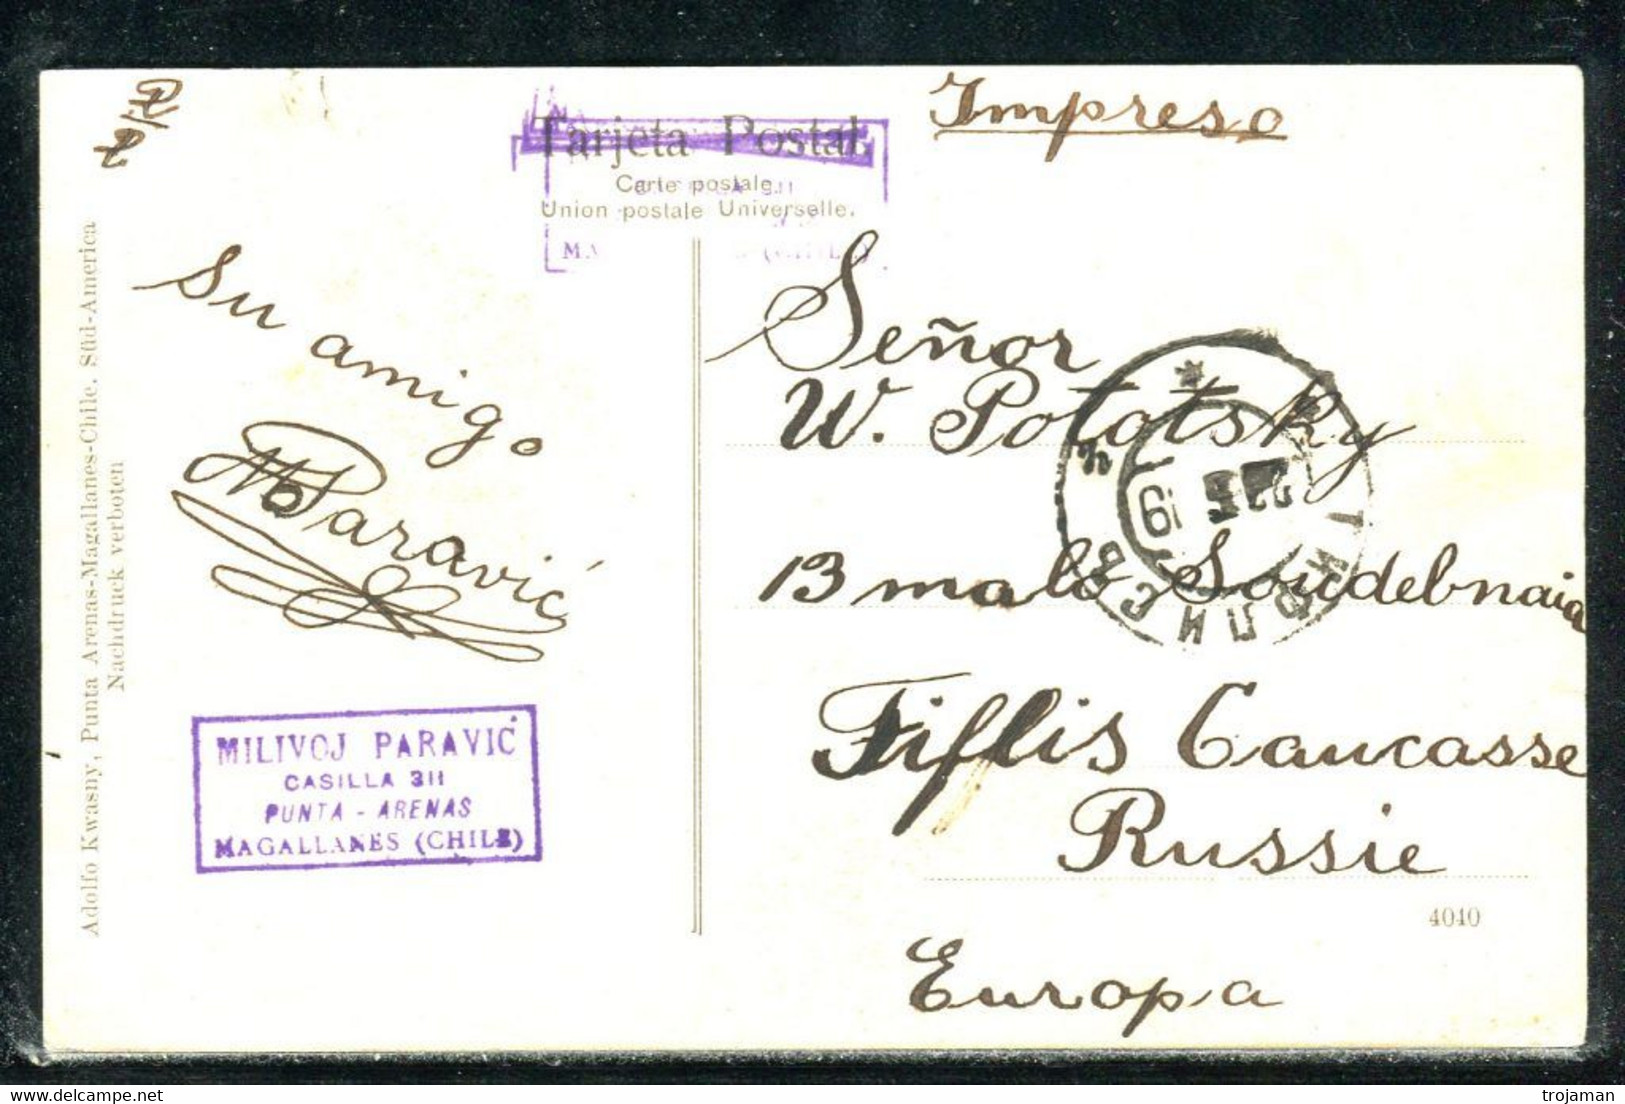 Impreso
Tarjeta Postal.
Carte postale.
Union postale Universelle.
Su amigo
M Paravić
MILIVOJ PARAVIĆ
CASILLA 311
PUNTA - ARENAS
MAGALLANES (CHILE)
Adolfo Kwasny, Punta Arenas-Magallanes-Chile. Süd-America
Nachdruck verboten
Señor
W. Pototsky
13 malo Soudebnaia
Tifflis Caucasse
Russie
Europa
4040
ТИФЛИСЪ
22 5 19
delcampe.net
trojaman